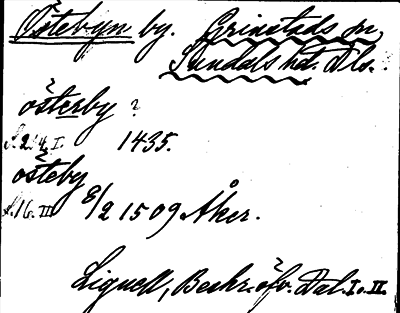 Östebyn by. Grinstads sn,
Sundals hd. Dls.
österby ?
s. 24. I. 1435.
östeby
s. 16. III 8/2 1509 Åker.
Lignell, Beskr. öfv. Dal. I o. II.